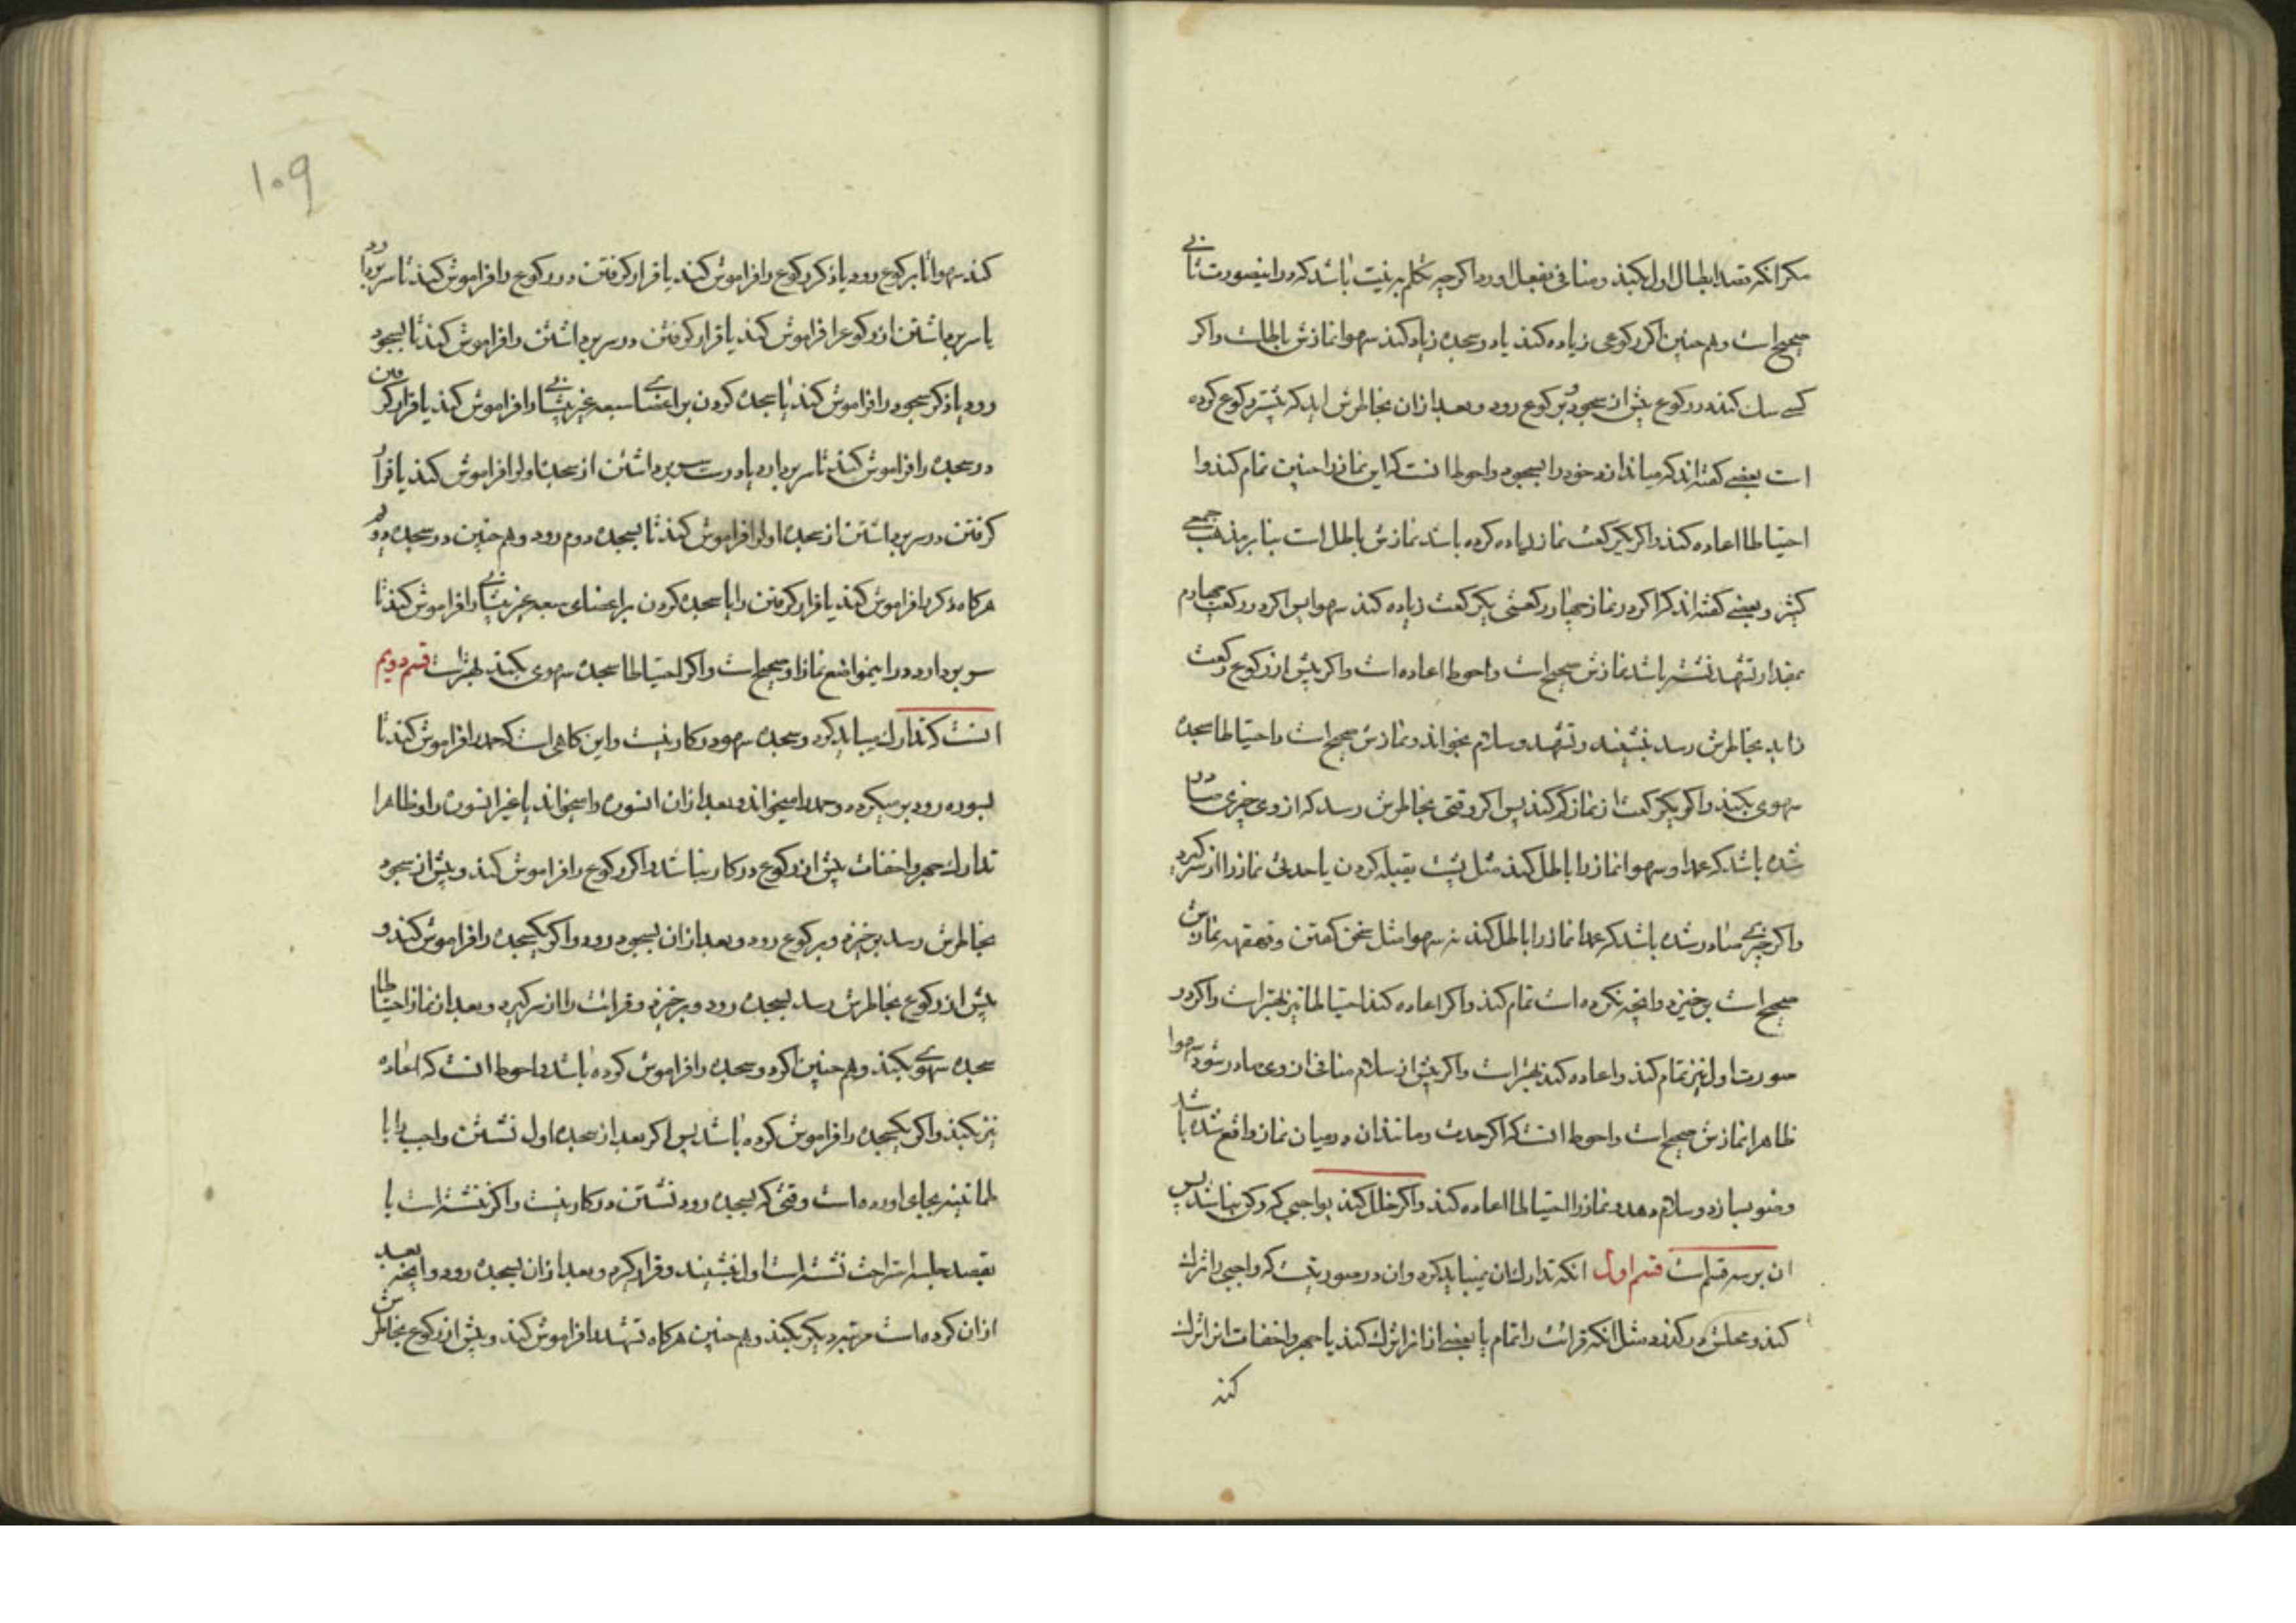 مکر انکه قصد ابطال اول بکند و منافی بفعل اورد اکرچه تکلم به نیت باشد که در اینصورت ثانی
صحیح است و هم چنین اکر رکوعی زیاده کند یا دو سجده زیاد کند سهوا نمازش باطلست و اکر
کسی شک کند در رکوع پیش از سجود و برکوع رود و بعد از ان بخاطرش اید که پیشتر رکوع کرده
است بعضی کفته اند که میاندازد خود را بسجود و احوط انست که این نماز را چنین تمام کند و
احتیاطا اعاده کند و اکر یکرکعت نماز زیاده کرده باشد نمازش باطل است بنا بر مذهب جمعی
کثیر و بعضی کفته اند که اکر در نماز چهار رکعتی یکرکعت زیاده کند سهوا پس اکر در رکعت چهارم
بمقدار تشهد نشسته باشد نمازش صحیح است و احوط اعاده است و اکر پیش از رکوع رکعت
زاید بخاطرش رسد بنشیند و تشهد و سلام بخواند و نمازش صحیح است و احتیاطا سجده
سهوی بکند و اکر یکرکعت از نماز کم کند پس اکر وقتی بخاطرش رسد که از وی چیزی صادر
شده باشد که عمدا و سهوا نماز را باطل کند مثل پشت بقبله کردن یا حدثی نماز را از سر کیرد
و اکر چیزی صادر شده باشد که عمدا نماز را باطل کند نه سهوا مثل سخن کفتن و قهقهه نمازش
صحیح است برخیزد و انچه نکرده است تمام کند و اکر اعاده کند احتیاطا نیز بهتر است و اکر در
صورت اول نیز تمام کند و اعاده کند بهتر است و اکر پیش از سلام منافی از وی صادر شود سهوا
ظاهرا نمازش صحیح است و احوط انست که اکر حدث و مانند ان در میان نماز واقع شده باشد
وضو بسازد و سلام دهد و نماز را احتیاطا اعاده کند و اکر خلل کند بواجبی که رکن نباشد پس
ان بر سه قسم است قسم اول انکه تدارک ان نمیباید کرد و ان در صورتیست که واجبی را ترک
کند و محلش در کذرد مثل انکه قرائت را تمام یا بعضی از انرا ترک کند یا جهر و اخفات انرا ترک
کند
۱۰۹
کند سهوا تا برکوع رود یا ذکر رکوع را فراموش کند یا قرار کرفتن در رکوع را فراموش کند تا سر بردارد
یا سر برداشتن از رکوع را فراموش کند یا قرار کرفتن در سر برداشتن را فراموش کند تا بسجود
رود یا ذکر سجود را فراموش کند یا سجده کردن بر اعضای سبعه غیر پیشانی را فراموش کند یا قرار کرفتن
در سجده را فراموش کند تا سر بردارد یا درست سر برداشتن از سجده اول را فراموش کند یا قرار
کرفتن در سر برداشتن از سجده اول را فراموش کند تا بسجده دوم رود و هم چنین در سجده دوم
هرکاه ذکر را فراموش کند یا قرار کرفتن را یا سجده کردن بر اعضای سبعه غیر پیشانی را فراموش کند تا
سر بردارد در اینمواضع نماز او صحیح است و اکر احتیاطا سجده سهوی بکند بهتر است قسم دویم
انست که تدارک میباید کرد و سجده سهو در کار نیست و این کاهی است که حمد را فراموش کند تا
بسوره رود برمیکردد و حمد را میخواند و بعد از ان انسوره را میخواند یا غیر انسوره را و ظاهرا
تدارک جهر و اخفات پیش از رکوع در کار نباشد و اکر رکوع را فراموش کند و پیش از سجود
بخاطرش رسد برخیزد و برکوع رود و بعد از ان بسجود رود و اکر یکسجده را فراموش کند و
پیش از رکوع بخاطرش رسد بسجده رود و برخیزد و قرائت را از سر کیرد و بعد از نماز احتیاطا
سجده سهوی بکند و هم چنین اکر دو سجده را فراموش کرده باشد و احوط انست که اعاده
نیز بکند و اکر یکسجده را فراموش کرده باشد پس اکر بعد از سجده اول نشستن واجب را با
طمانینه بجای اورده است وقتی که بسجده رود نشستن در کار نیست و اکر ننشسته است یا
بقصد جلسه استراحت نشسته است اول بنشیند و قرار کیرد و بعد از ان بسجده رود و انچه بعد
از ان کرده است مرتبه دیکر بکند و هم چنین هرکاه تشهد را فراموش کند و پیش از رکوع بخاطرش